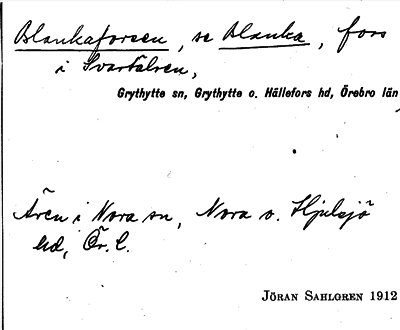 Blankaforsen, se Blanka, fors
i Svartälven,
Grythytte sn, Grythytte o. Hällefors hd, Örebro län
Även i Nora sn, Nora o. Hjulsjö
hd, Ör. l.
JÖRAN SAHLGREN 1912